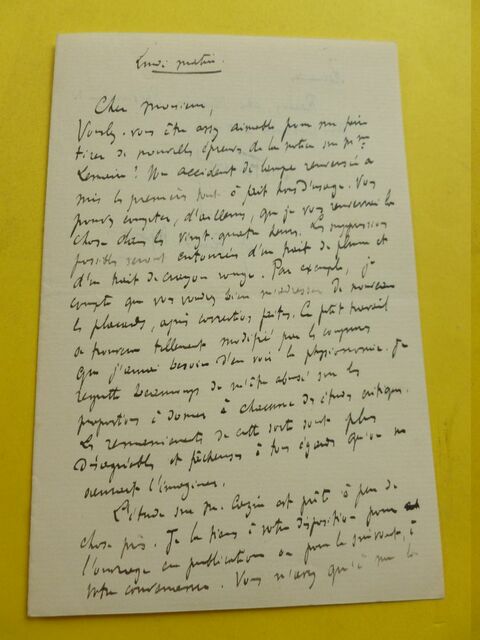 Lundi matin.
Cher monsieur,
Voulez-vous être assez aimable pour me faire
tirer de nouvelles épreuves de la notice sur Mme
Lemaire ? Un accident de lampe renversée a
mis les premières tout à fait hors d'usage. Vous
pouvez compter, d'ailleurs, que je vous renverrai la
chose dans les vingt-quatre heures. Les suppressions
possibles seront entourées d'un trait de plume et
d'un trait de crayon rouge. Par exemple, je
compte que vous voudrez bien m'adresser de nouveau
les placards, après corrections faites. Ce petit travail
se trouvera tellement modifié par les coupures
que j'aurai besoin d'en voir la physionomie. Je
regrette beaucoup de m'être abusé sur les
proportions à donner à chacune des études critiques.
Les remaniements de cette sorte sont plus
désagréables et fâcheux à tous égards qu'on ne
saurait l'imaginer.
L'étude sur M. Cazin est prête à peu de
chose près. Je la tiens à votre disposition pour
l'ouvrage en publication ou pour le suivant, à
votre convenance. Vous n'avez qu'à me le